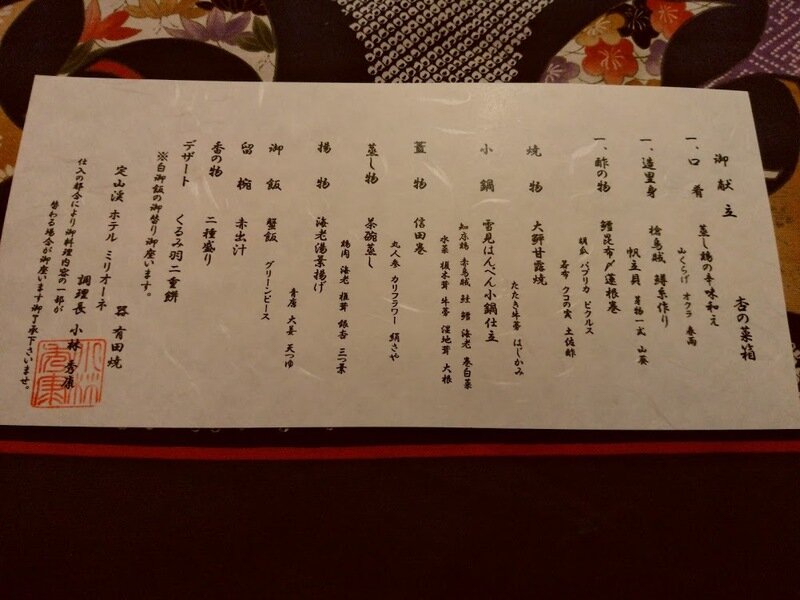 御献立
杏の菜箱
一、口肴 蒸し鶏の辛味和え
山くらげ オクラ 春雨
一、造里身 桧烏賊 鱒糸作り
帆立貝 芽物一式 山葵
一、酢の物 鱈昆布〆蓮根巻
胡瓜 パプリカ ピクルス
若布 クコの実 土佐酢
焼物 大鰤甘露焼
たたき牛蒡 はじかみ
小鍋 雪見はんぺん小鍋仕立
知床鶏 赤烏賊 鮭 鱈 海老 巻白菜
水菜 榎木茸 牛蒡 湿地茸 大根
蓋物 信田巻
丸人参 カリフラワー 絹さや
蒸し物 茶碗蒸し
鶏肉 海老 椎茸 銀杏 三つ葉
揚物 海老湯葉揚げ
青唐 大葉 天つゆ
御飯 蟹飯 グリーンピース
留椀 赤出汁
香の物 二種盛り
デザート くるみ羽二重餅
※白御飯の御替り御座います。
器 有田焼
定山渓 ホテル ミリオーネ
調理長 小林 秀康
仕入の都合により御料理内容の一部が
替わる場合が御座います御了承下さいませ。